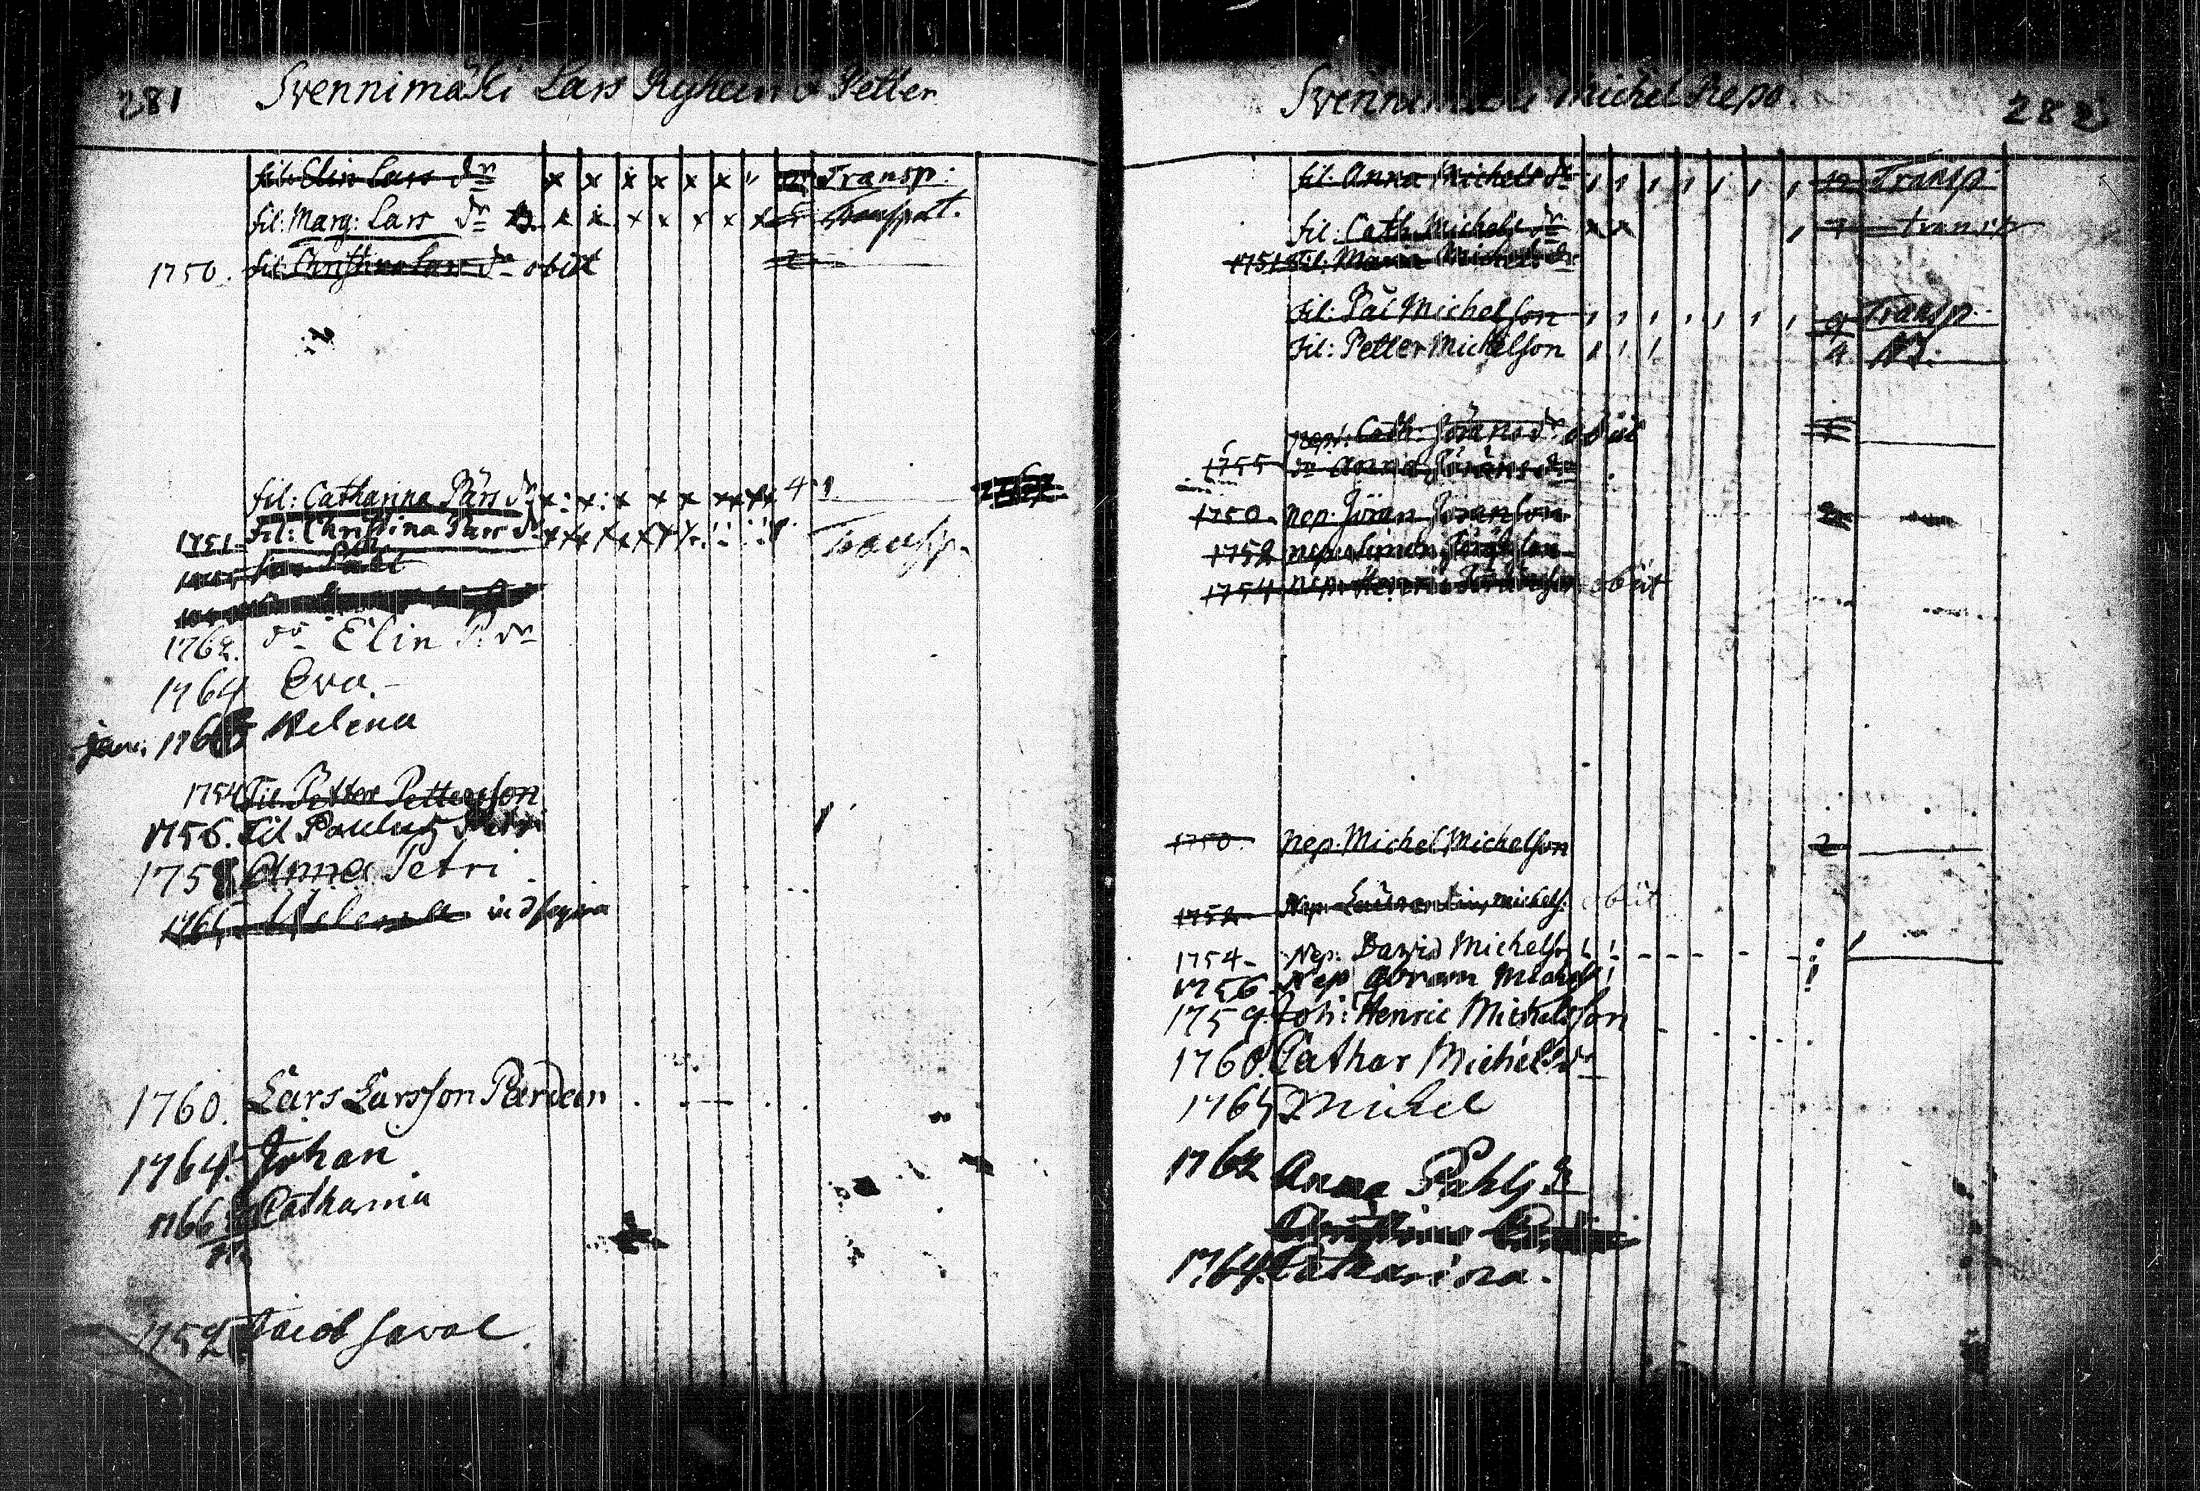 281 Svennimäki Lars Ryhein & Petter
fil: Elin Lars dr x x x x x x " Transp:
fil: Marg: Lars dr x x x x x x x Transport.
1750. fil: Christina Lars dr obiit 2
fil: Catharina Pärs dr 4
1751. fil: Christina Pärs dr Transp.
1762. dr Elin P. dr
1764 Eva.
jan. 176 Helena
1754 Fil. Petter Petterson
1756. Fil Paulus Petri
1758 Anna Petri
1765 Helena
1760. Lars Larsson Pardain
1764. Johan
1766 Catharina
1752 Jacob Saval
Svennimäki Michel Repo. 282
fil: Anna Michels dr 12 Transp.
fil: Cath. Michels dr 7 Transp
1751 fil: Maria Michels dr
fil: Pål Michelson 9 Transp.
fil: Petter Michelson 4 NB.
nep: Cath: Jörans dr obiit
1755 dr Anna Jörans dr
1750. nep. Jöran Joranson 2
1752 nep. Simon
1754 nep. Henric obiit
1750. nep. Michel Michelson 2
1752 Nep. Laurentius Michels. obiit
1754 Nep. David Michelson
1756. Nep Abram Michels
1759. Joh: Henric Michelsson
1760. Cathar Michels dr
1765 Michel
1762 Anna Pahls dr
Christina
1764. Catharina.